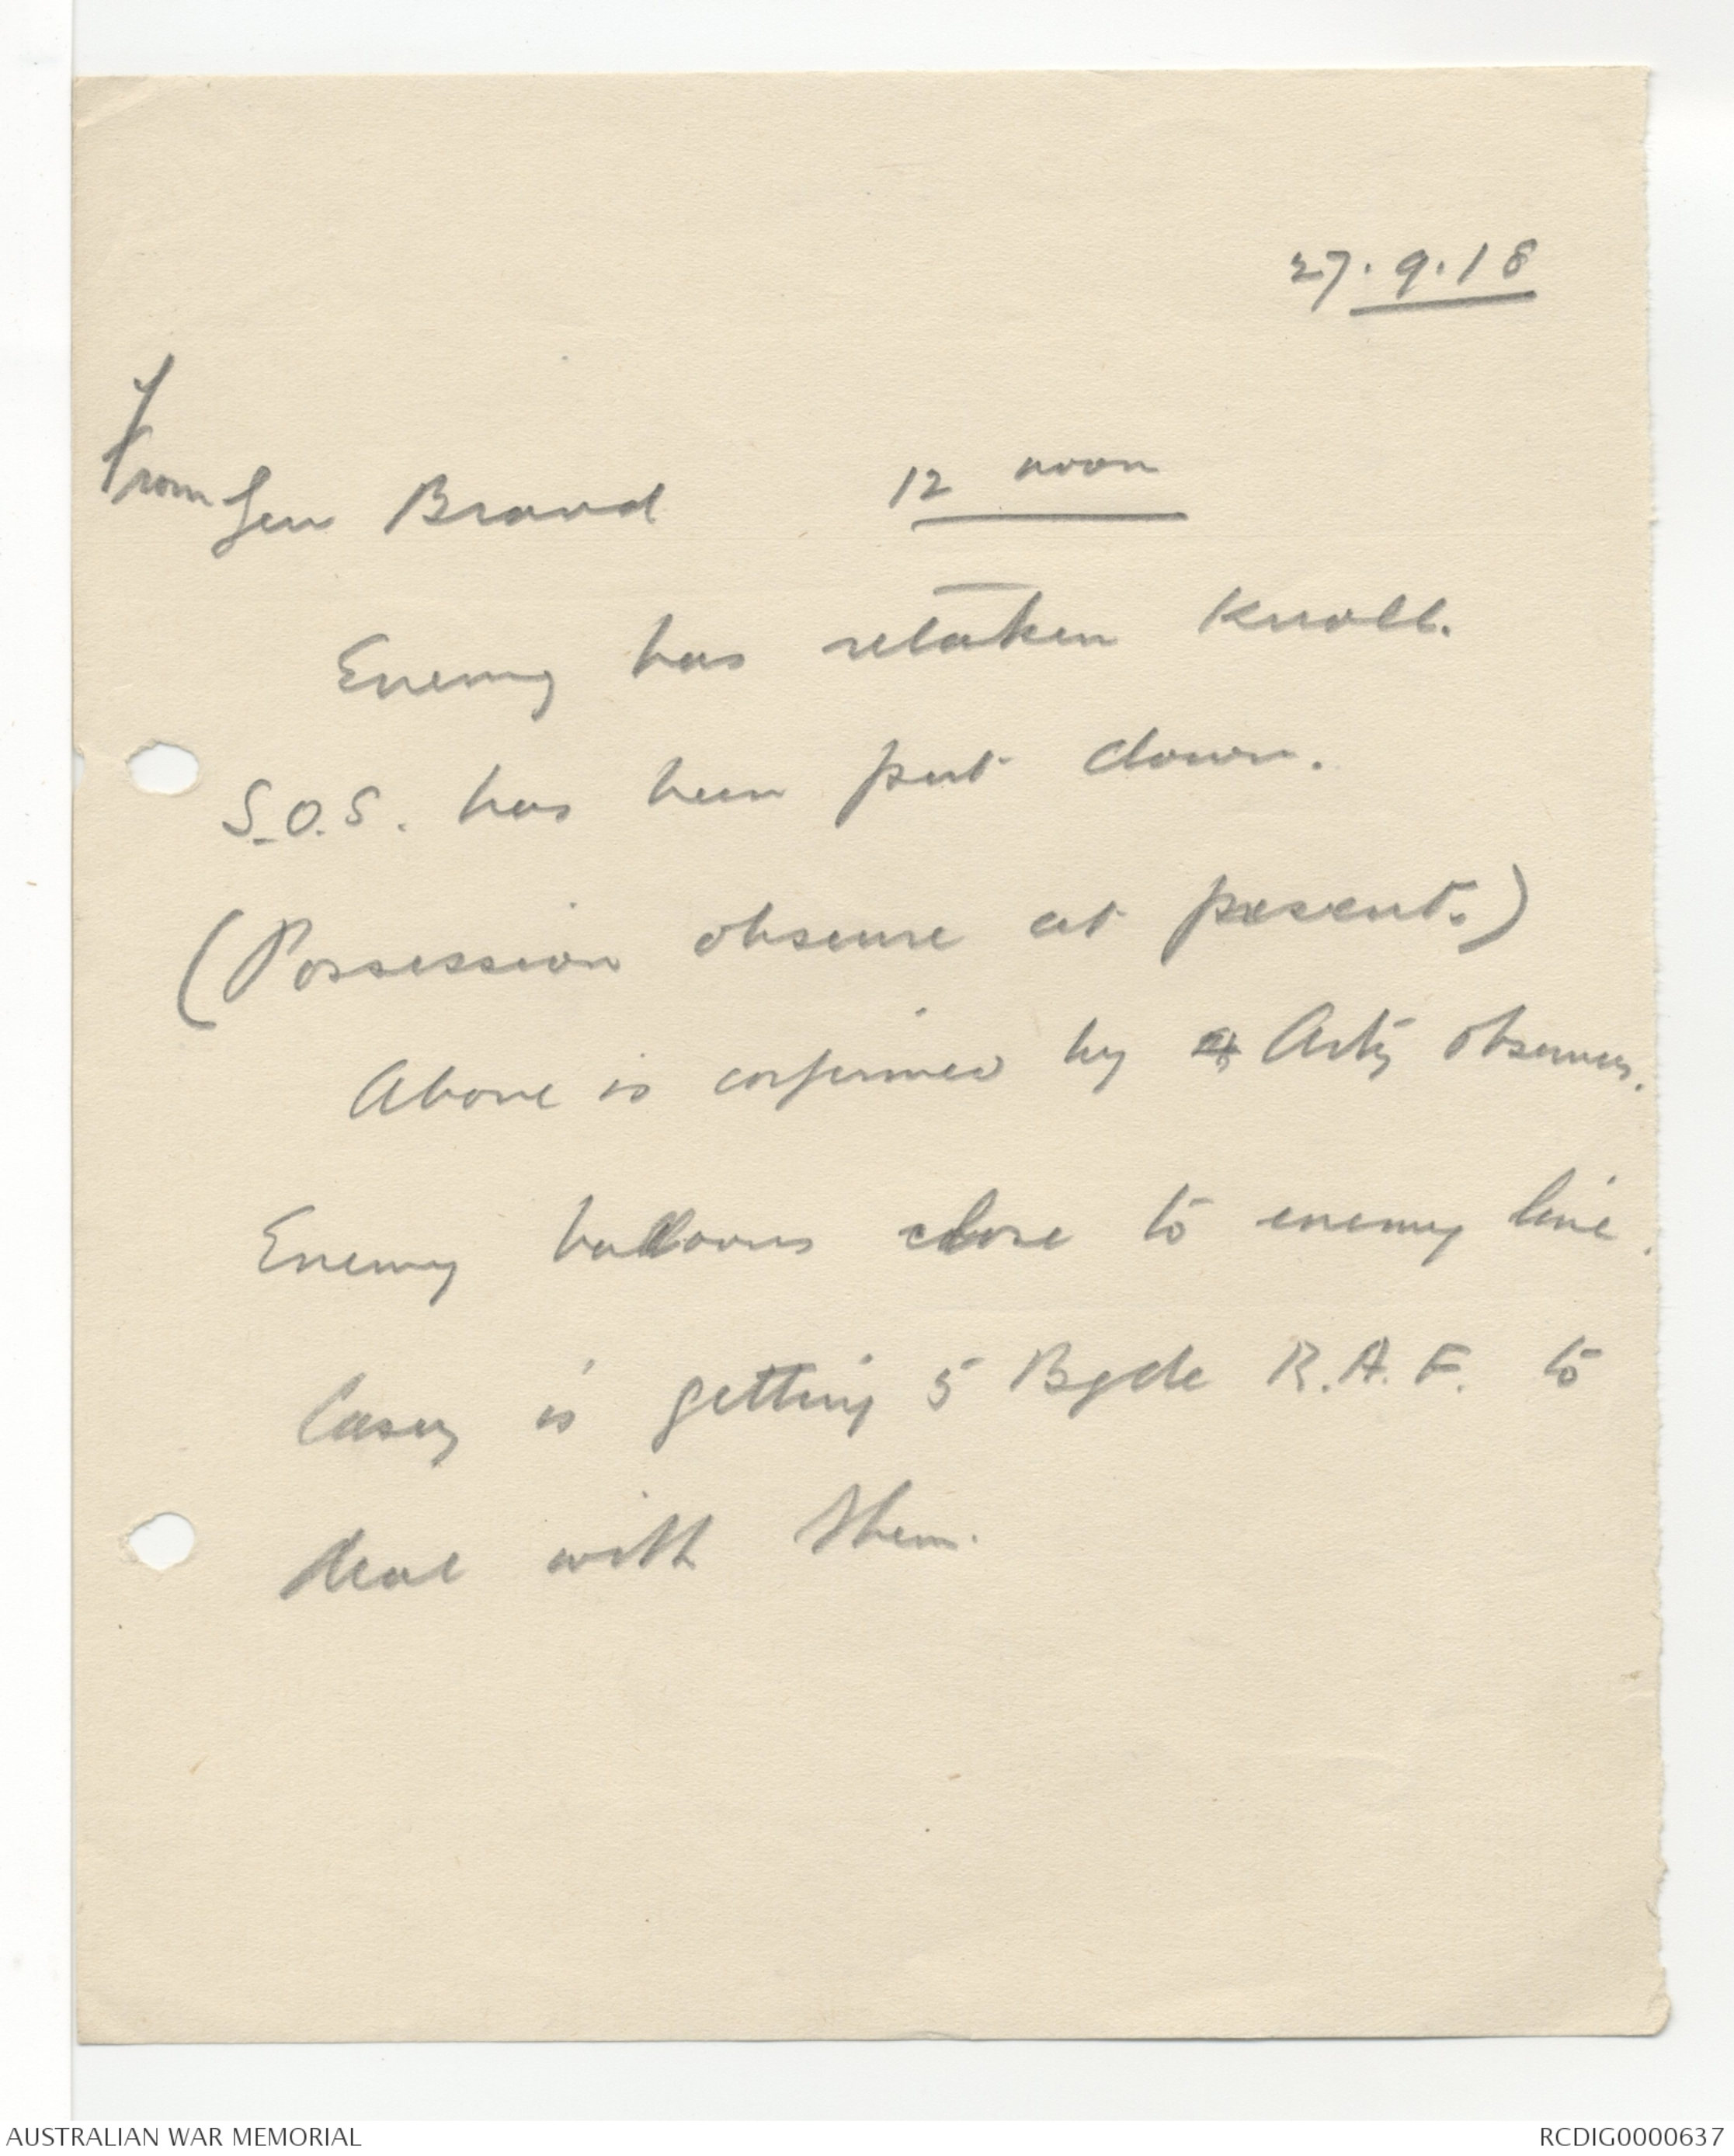 27.9.18
From Gen Brand 12 noon
Enemy has retaken Knoll.
S.O.S. has been put down.
(Possession obscure at present.)
Above is confirmed by Arty observers.
Enemy balloons close to enemy line.
Casey is getting 5 Bgde R.A.F. to
deal with them.
AUSTRALIAN WAR MEMORIAL RCDIG0000637